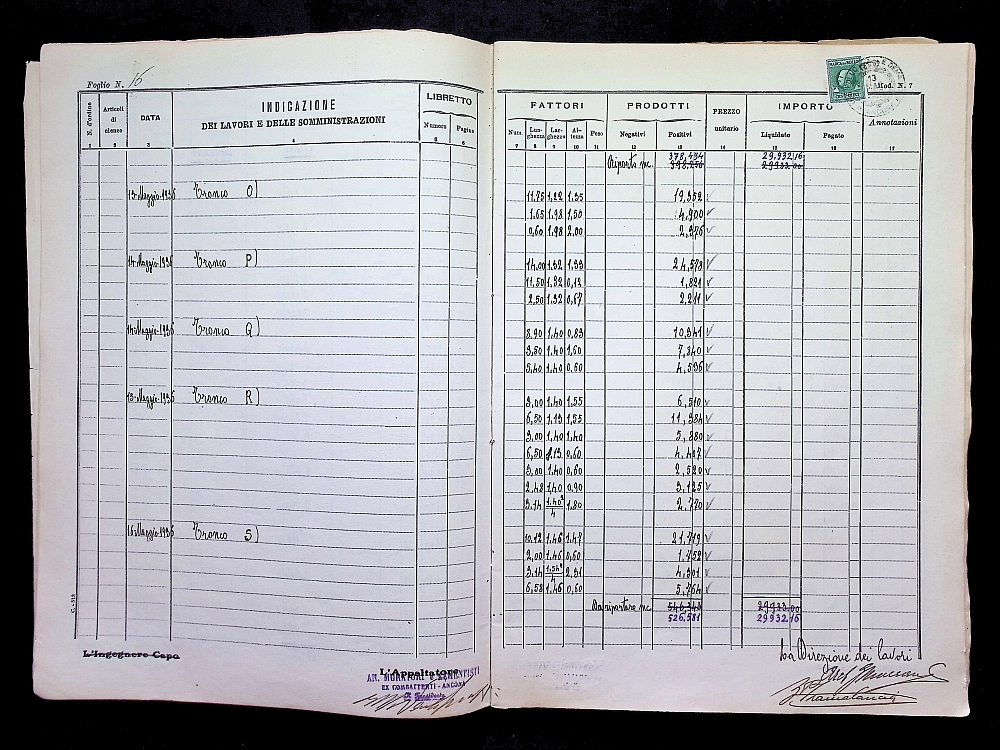 Foglio N. 16
N. d'ordine
Articoli di elenco
DATA
INDICAZIONE
DEI LAVORI E DELLE SOMMINISTRAZIONI
LIBRETTO
Numero
Pagina
1 2 3 4 5 6
13-Maggio-1936 Tronco O)
14-Maggio-1936 Tronco P)
14-Maggio-1936 Tronco Q)
15-Maggio-1936 Tronco R)
16-Maggio-1936 Tronco S)
L'Ingegnere Capo
L'Appaltatore
EX COMBATTENTI - ANCONA
Il Presidente
Mod. N. 7
FATTORI PRODOTTI PREZZO unitario IMPORTO Annotazioni
Num. Lunghezza Larghezza Altezza Peso Negativi Positivi Liquidato Pagato
7 8 9 10 11 12 13 14 15 16 17
378,494 29.932,16
Riporto mc. 29933.00
11.75 1,22 1,35 19,352
1.65 1.98 1,50 4,900
0,60 1.98 2.00 2,376
14.00 1.32 1.33 24,578
11,50 1.32 0,12 1,821
2,50 1.32 0,67 2,211
8.90 1.40 0,83 10,341
3,50 1.40 1,60 7,840
5,40 1.40 0,60 4,536
3,00 1.40 1.55 6,510
6,50 1.13 1,55 11,384
3,00 1,40 1,40 5,880
6,50 1.13 0,60 4,407
3,00 1.40 0,60 2,520
2,48 1,40 0,90 3,125
3,14 1.40²/4 1.80 2,770
10,12 1.46 1,47 21,719
2,00 1.46 0,60 1,752
3,14 1,54²/4 2,31 4,301
6,58 1,46 0,60 5,764
Da riportare mc. 546,343 29933.00
526,581 29932,16
La Direzione dei lavori